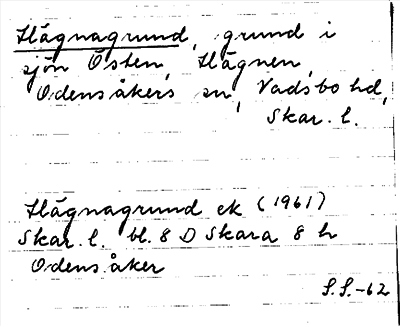 Hägnagrund, grund i
sjön Östen, Hägnen,
Odensåkers sn, Vadsbo hd,
Skar. l.
Hägnagrund ek (1961)
Skar. l. bl. 8 D Skara 8 h
Odensåker
S.S.-62